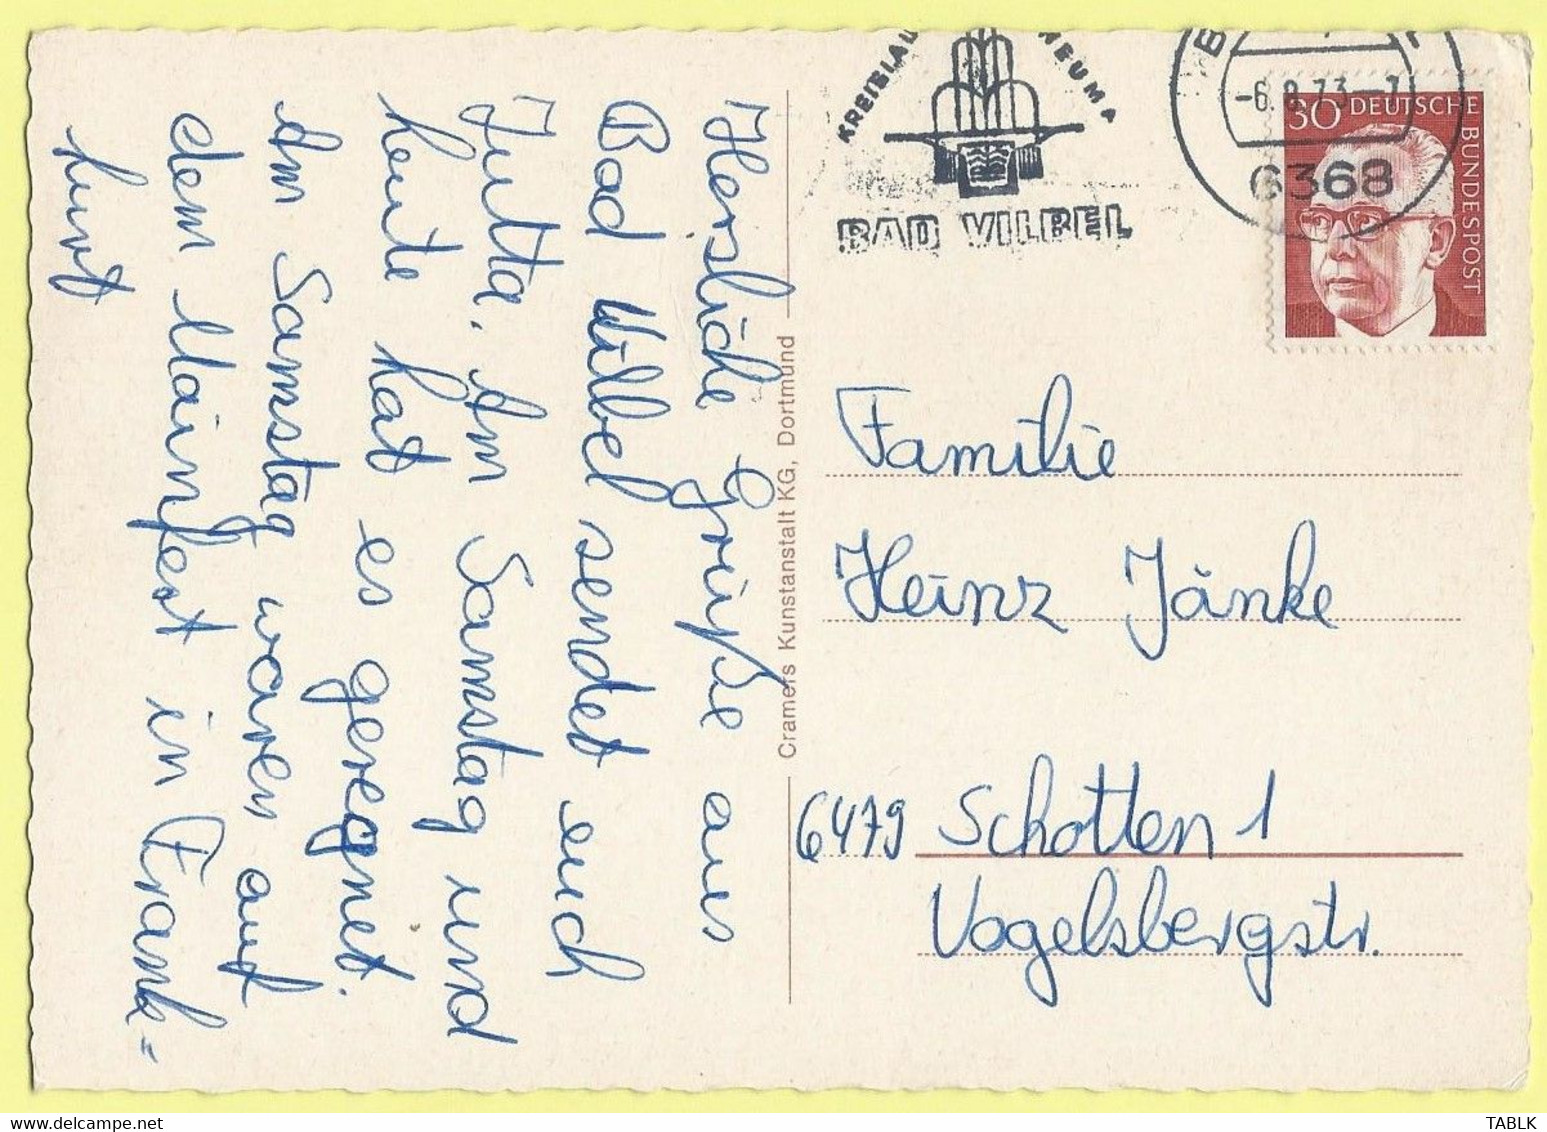 Herzliche Grüße aus
Bad Vilbel sendet euch
Jutta. Am Samstag und
heute hat es geregnet.
Am Samstag waren auf
dem Mainfest in Frank=
furt
Cramers Kunstanstalt KG, Dortmund
KREISLAU
RHEUMA
BAD VILBEL
-6.8.73-
6368
30 DEUTSCHE
BUNDESPOST
Familie
Heinz Jänke
6479 Schotten 1
Vogelsbergstr.
TABLK